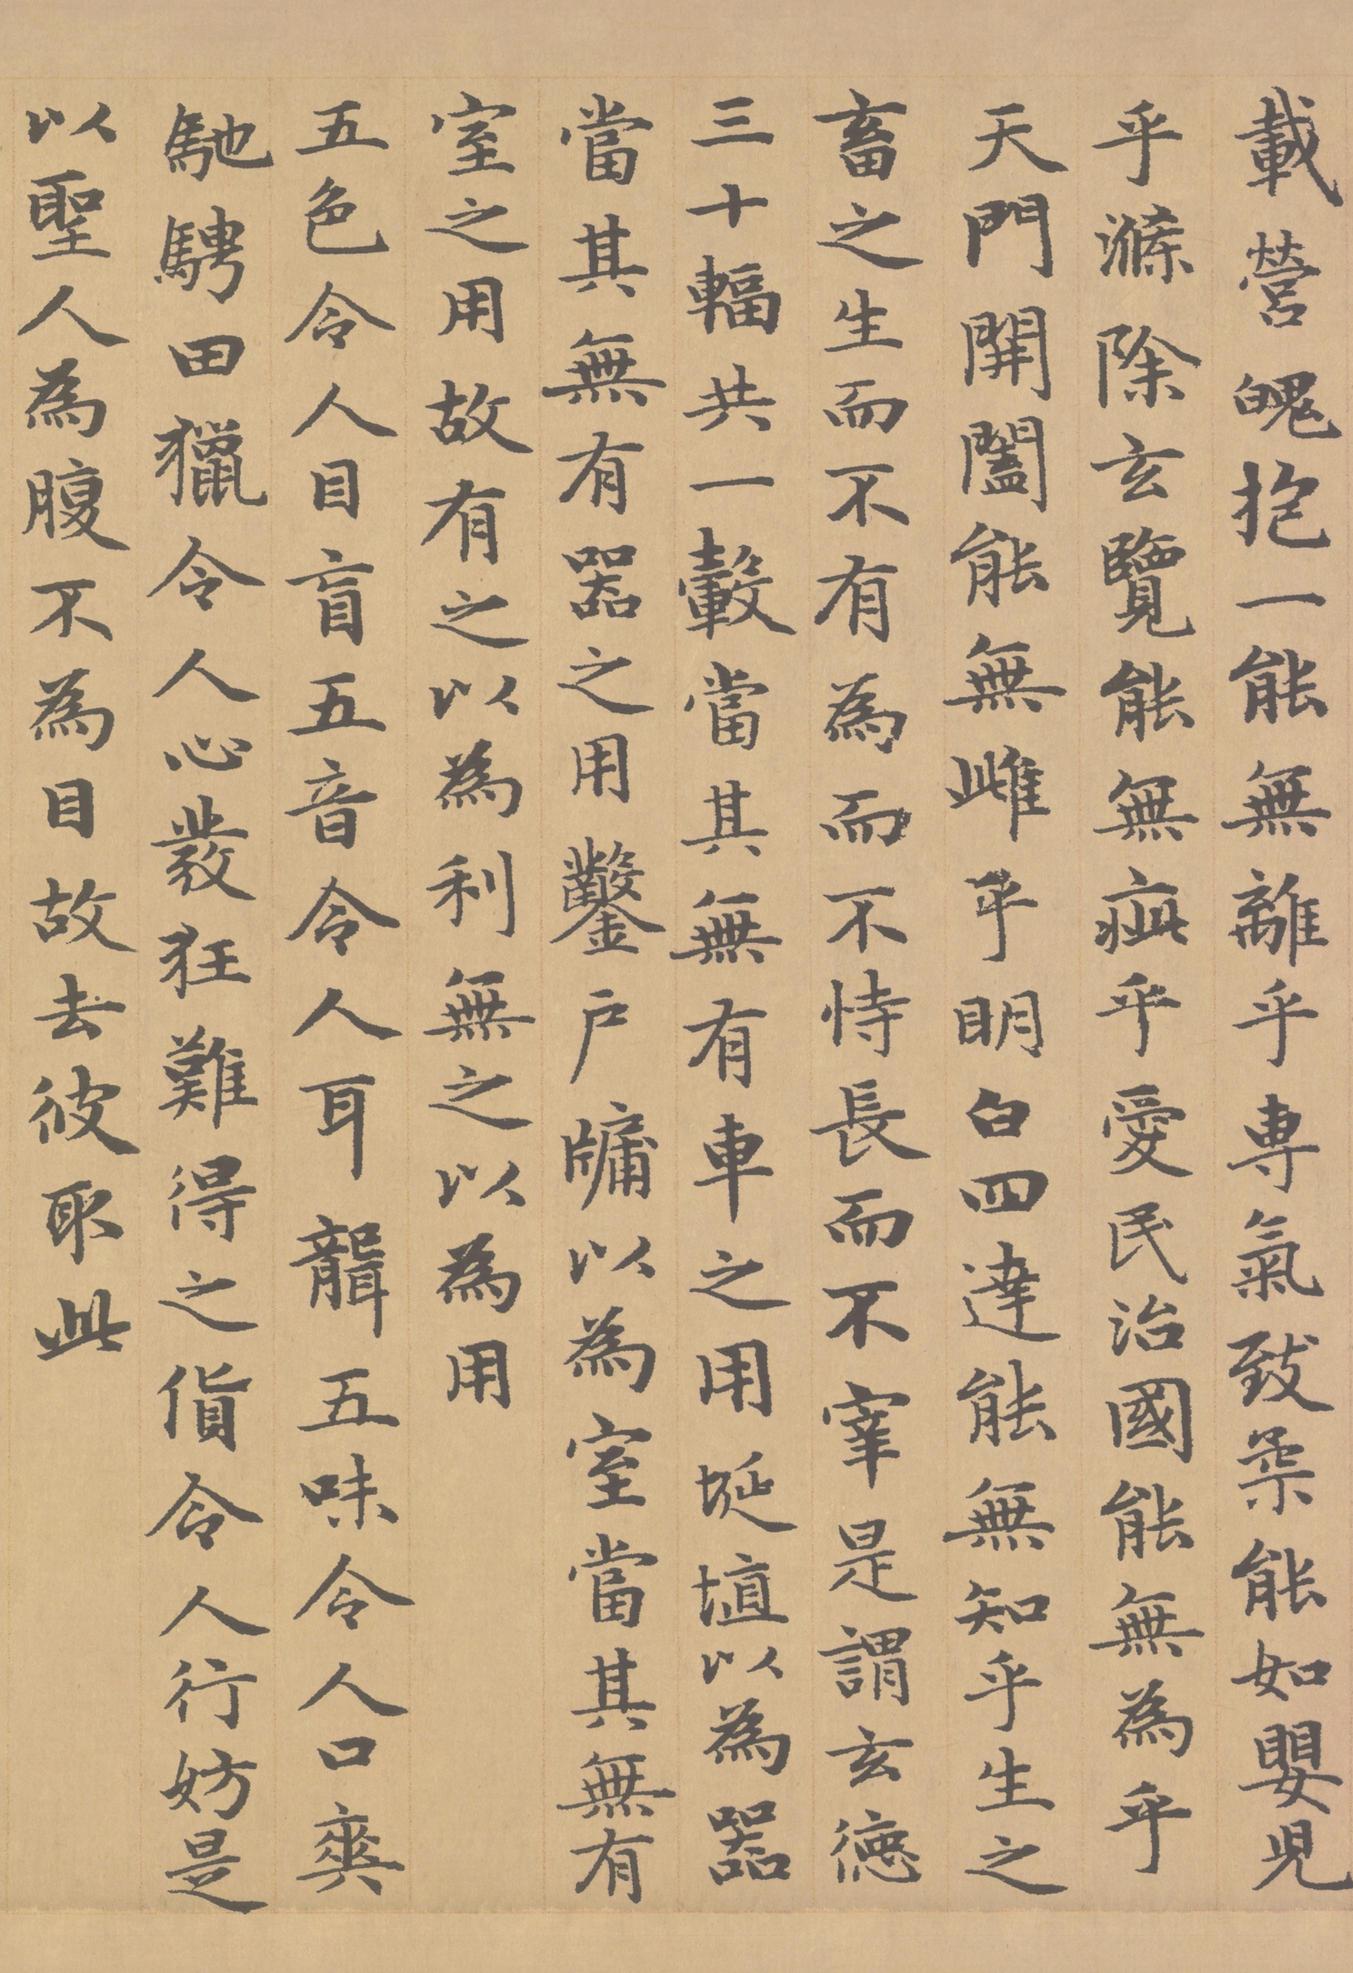 載營魄抱一能無離乎專氣致柔能如嬰兒
乎滌除玄覽能無疵乎愛民治國能無為乎
天門開闔能無雌乎明白四達能無知乎生之
畜之生而不有為而不恃長而不宰是謂玄德
三十輻共一轂當其無有車之用埏埴以為器
當其無有器之用鑿戶牖以為室當其無有
室之用故有之以為利無之以為用
五色令人目盲五音令人耳聾五味令人口爽
馳騁田獵令人心發狂難得之貨令人行妨是
以聖人為腹不為目故去彼取此